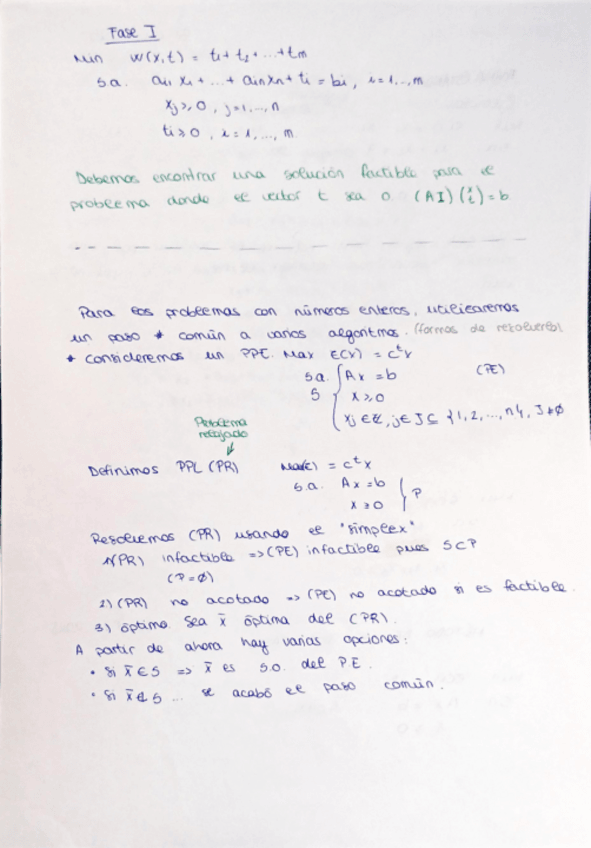 Fase I
Min W(x,t) = t₁ + t₂ + ... + tm
s.a. ai1 x1 + ... + ain xn + ti = bi, i=1,..,m
xj ≥ 0, j=1,...,n
ti ≥ 0, i=1,..., m.
Debemos encontrar una solución factible para el
problema donde el vector t sea 0. (A I) (x t) = b
Para los problemas con números enteros, utilizaremos
un paso * común a varios algoritmos. (formas de resolverlo)
* Consideremos un PPE. Max z(x) = cᵗx
s.a. { Ax = b (PE)
S x ≥ 0
xj ∈ Z, j ∈ J ⊆ {1, 2, ..., n}, J ≠ ∅
Problema
relajado
↓
Definimos PPL (PR) Max z() = cᵗx
s.a. Ax = b } P
x ≥ 0
Resolvemos (PR) usando el "simplex"
1) (PR) infactible => (PE) infactible pues S ⊂ P
(P = ∅)
2) (PR) no acotado => (PE) no acotado si es factible.
3) óptimo. Sea x̄ óptima del (PR).
A partir de ahora hay varias opciones:
• Si x̄ ∈ S => x̄ es S.O. del PE.
• Si x̄ ∉ S ... se acabó el paso común.